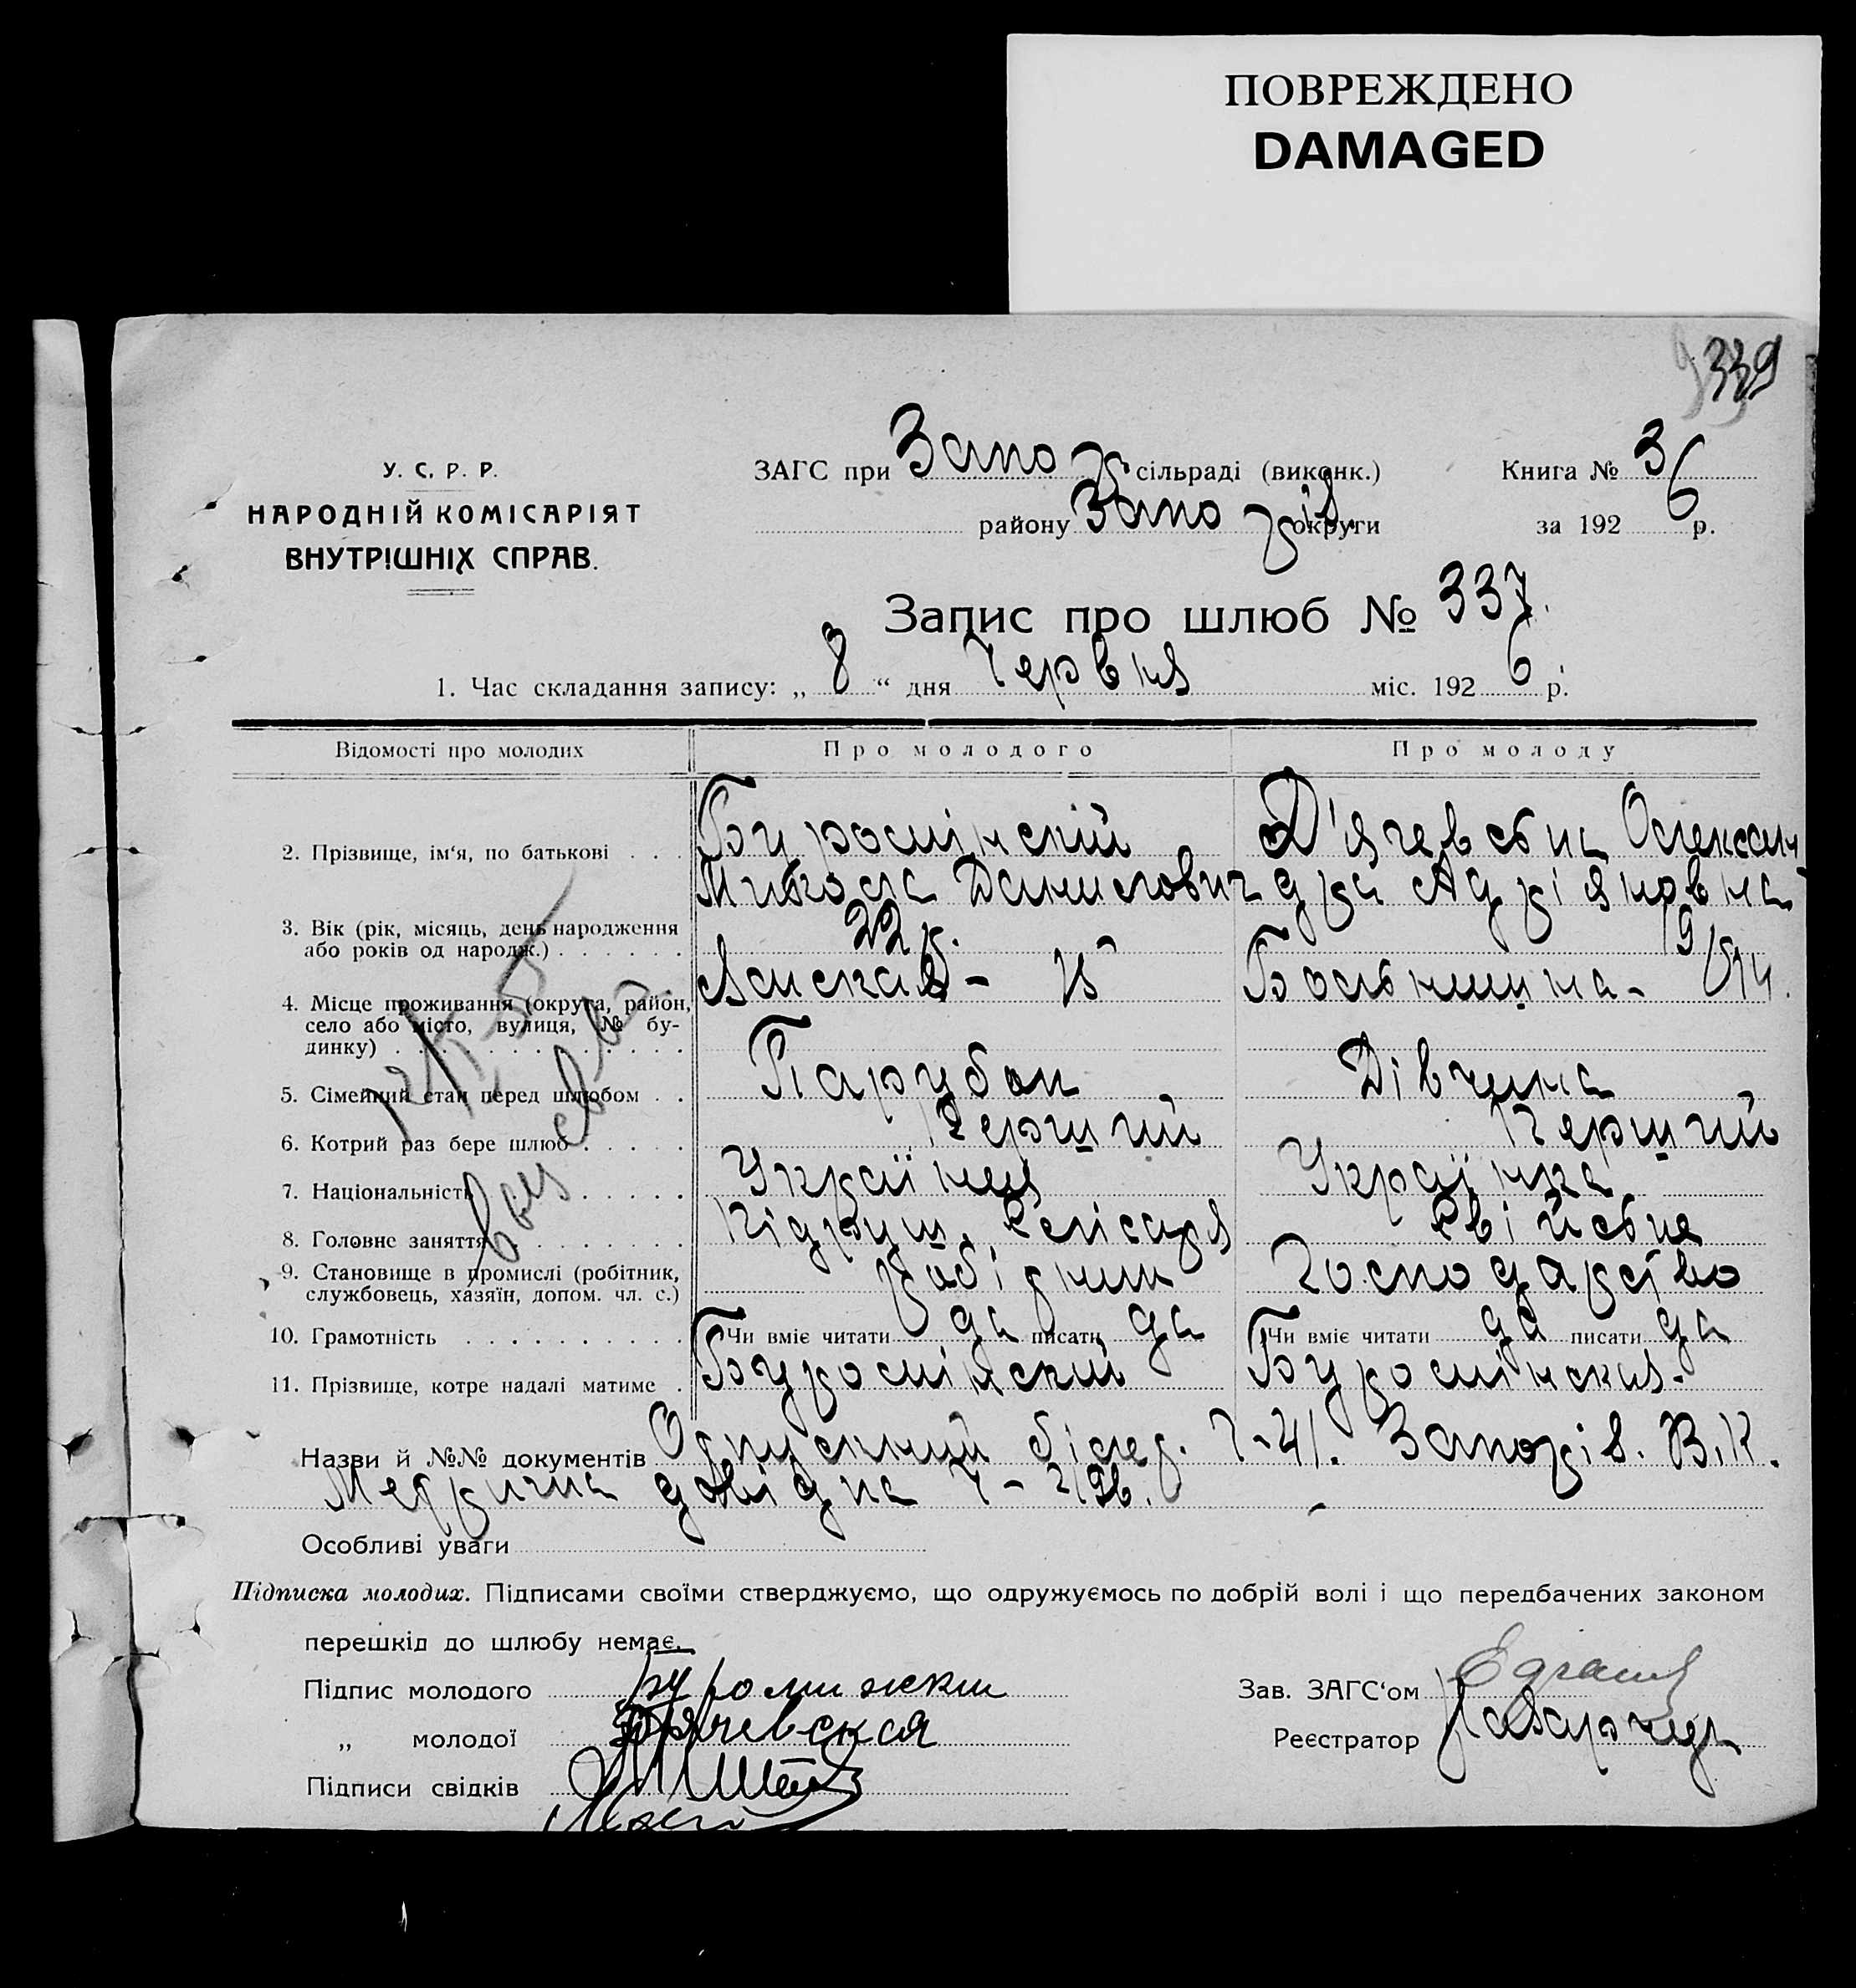 ПОВРЕЖДЕНО
DAMAGED
339
У. С. Р. Р.
НАРОДНІЙ КОМІСАРІЯТ
ВНУТРІШНІХ СПРАВ.
ЗАГС при Запор сільраді (виконк.)
району Запорів округи
Книга № 3
за 1926 р.
Запис про шлюб № 337.
1. Час складання запису: „ 8 “ дня Червня міс. 1926 р.
Відомості про молодих
Про молодого
Про молоду
2. Прізвище, ім‘я, по батькові . . .
Буромінский
Микола Данилович
Д'ячевська Олексан
дра Адріяновна
3. Вік (рік, місяць, день народження
або років од народж.) . . . . . .
22 р.
19
4. Місце проживання (округа, район,
село або місто, вулиця, № бу-
динку) . . . . . . . . . . . . . .
Больнична -
5. Сімейний стан перед шлюбом . .
Парубок
Дівчина
6. Котрий раз бере шлюб . . . . .
Перший
Перший
7. Національність . . . . . .
Українец
Українка
8. Головне заняття . . . . . . .
Підруч. слісаря
Свійське
9. Становище в промислі (робітник,
службовець, хазяїн, допом. чл. с.)
робідник
господарство
10. Грамотність . . . . . . . . . .
Чи вміє читати да писати да
Чи вміє читати да писати да
11. Прізвище, котре надалі матиме .
Буромінский
Буромінская.
Назви й №№ документів білед. Ч-41. Запорів. В.К.
Метрична довідка Ч-
Особливі уваги
Підписка молодих. Підписами своїми стверджуємо, що одружуємось по добрій волі і що передбачених законом
перешкід до шлюбу немає.
Підпис молодого Буроминский
„ молодої Дячевская
Підписи свідків
Зав. ЗАГС‘ом
Реєстратор